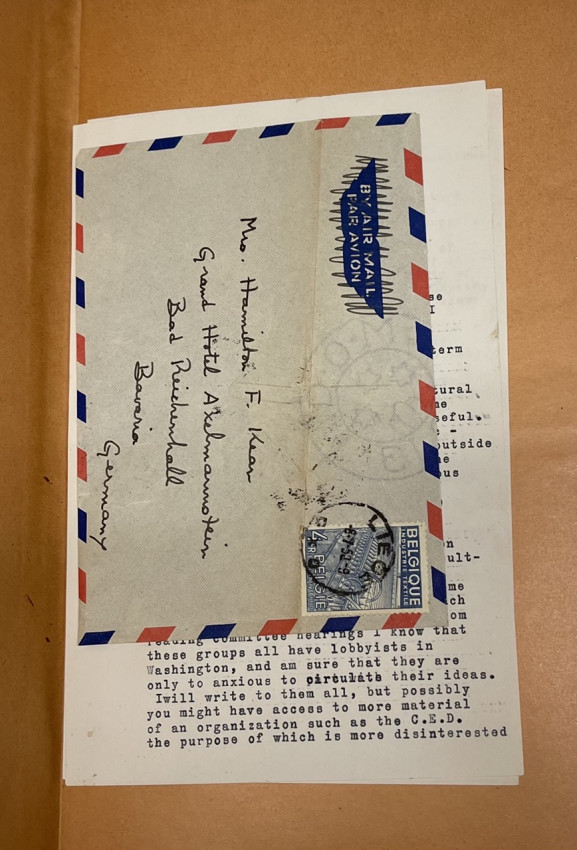 BY AIR MAIL
PAR AVION
Mrs. Hamilton F. Kean
Grand Hotel Axelmannstein
Bad Reichenhall
Bavaria
Germany
BELGIQUE
INDUSTRIE TEXTILE
4FR BELGIE
se
I
term
tural
me
seful.
outside
ous
on
ult-
me
ch
om
reading committee hearings I know that
these groups all have lobbyists in
Washington, and am sure that they are
only to anxious to circulate their ideas.
Iwill write to them all, but possibly
you might have access to more material
of an organization such as the C.E.D.
the purpose of which is more disinterested